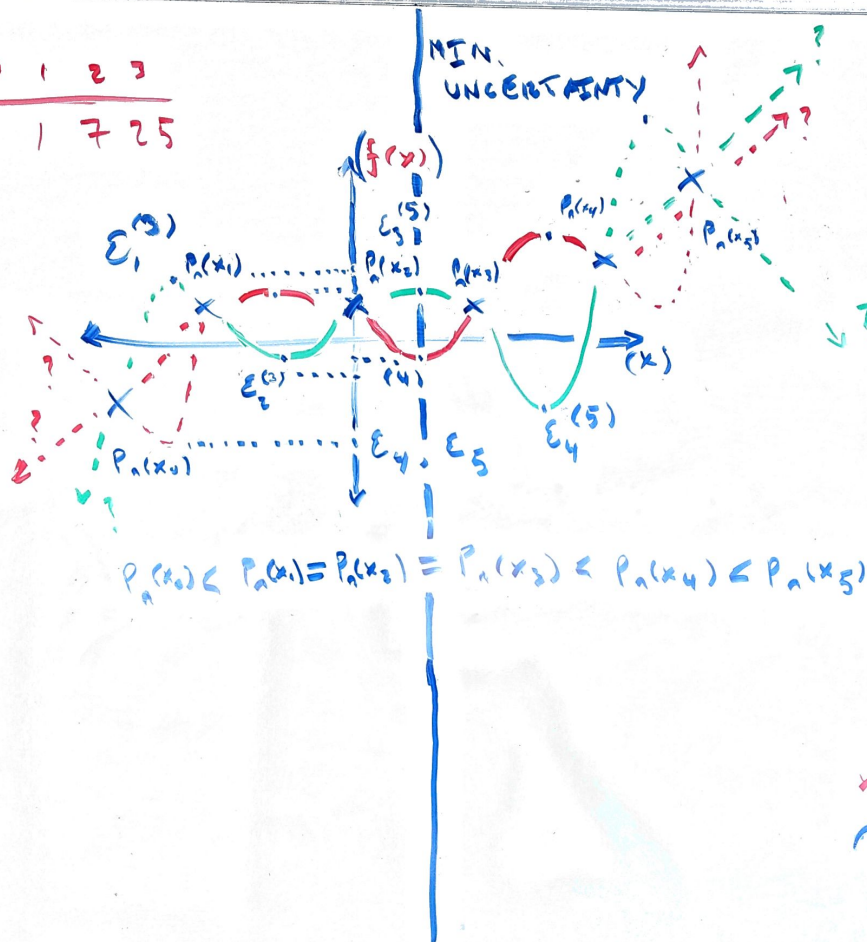 MIN.
UNCERTAINTY
1 2 3
1 7 25
(f(x))
ε₁⁽³⁾
ε₃⁽⁵⁾
Pₙ(x₁)
Pₙ(x₂)
Pₙ(x₃)
Pₙ(x₄)
Pₙ(x₅)
(x)
ε₂⁽³⁾
(4)
ε₄⁽⁵⁾
Pₙ(x₀)
ε₄ ε₅
?
?
?
?
?
Pₙ(x₀) < Pₙ(x₁) = Pₙ(x₂) = Pₙ(x₃) < Pₙ(x₄) < Pₙ(x₅)